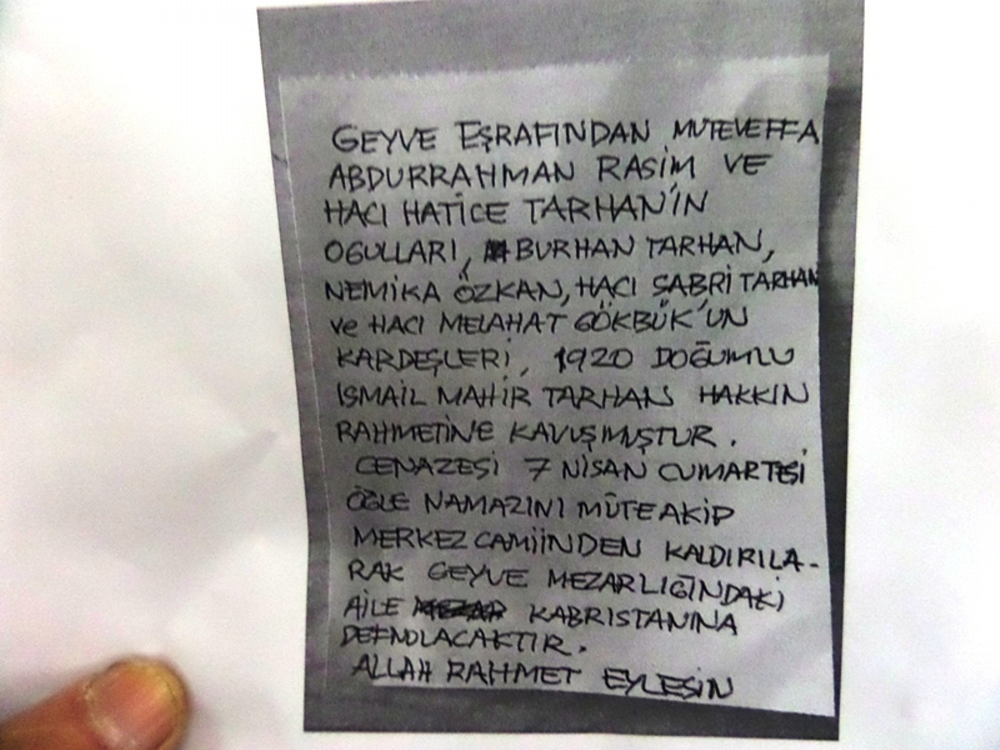 GEYVE EŞRAFINDAN MUTEVEFFA
ABDURRAHMAN RASİM VE
HACI HATİCE TARHAN'IN
OGULLARI, BURHAN TARHAN,
NEMİKA ÖZKAN, HACI SABRİ TARHAN
ve HACI MELAHAT GÖKBÜK'ÜN
KARDEŞLERİ, 1920 DOĞUMLU
ISMAİL MAHİR TARHAN HAKKIN
RAHMETİNE KAVUŞMUŞTUR.
CENAZESİ 7 NİSAN CUMARTESİ
ÖĞLE NAMAZINI MÜTEAKİP
MERKEZ CAMİİNDEN KALDIRILA-
RAK GEYVE MEZARLIĞINDAKİ
AİLE KABRISTANINA
DEFNOLACAKTIR.
ALLAH RAHMET EYLESİN